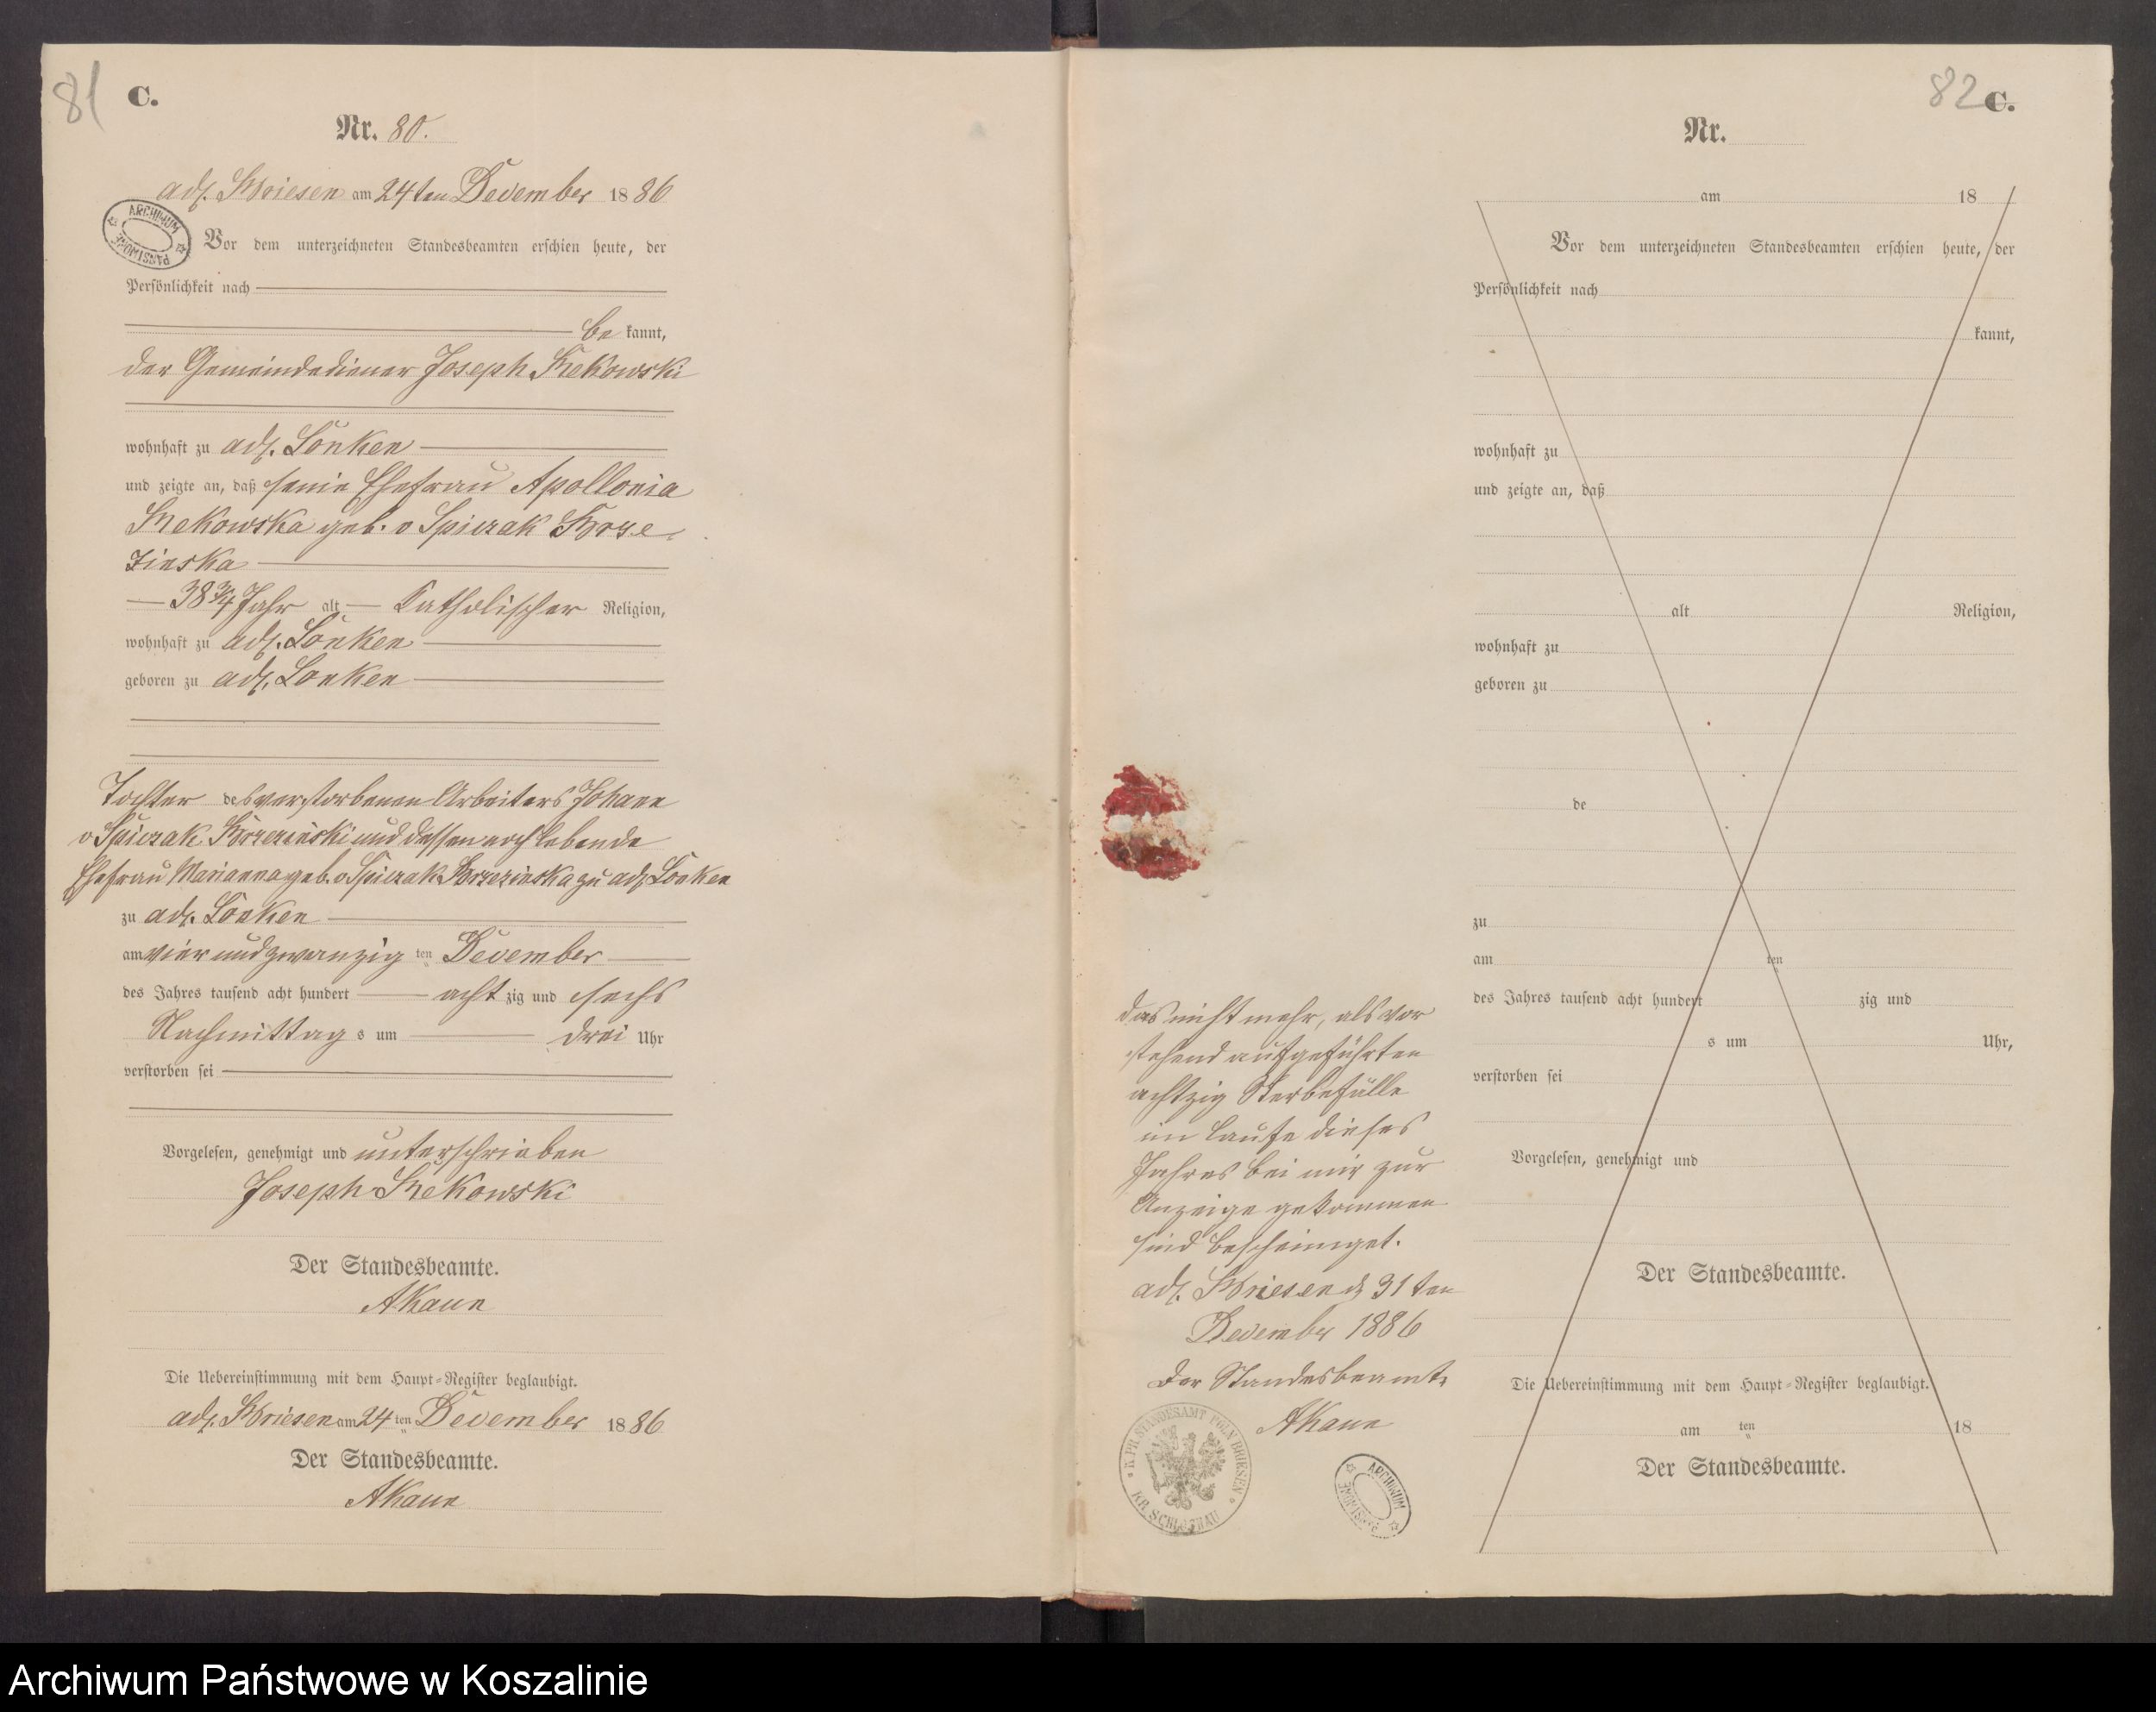 81
C.
Nr. 80.
adl. Briesen am 24ten December 1886
ARCHIWUM PAŃSTWOWE
Vor dem unterzeichneten Standesbeamten erschien heute, der
Persönlichkeit nach
be kannt,
der Gemeindediener Joseph
wohnhaft zu adl. Lonken
und zeigte an, daß seine Ehefrau Apollonia
geb. v Spiczak Brze
zinska
38 3/4 Jahr alt Katholischer Religion,
wohnhaft zu adl. Lonken
geboren zu adl. Lonken
Tochter des verstorbenen Arbeiters Johann
v Spiczak Brzezinski und dessen noch lebende
Ehefrau Marianna geb. v Spiczak Brzezinska zu adl. Lonken
zu adl. Lonken
am vier und zwanzig ten December
des Jahres tausend acht hundert acht zig und sechs
Nachmittag s um drei Uhr
verstorben sei
Vorgelesen, genehmigt und unterschrieben
Joseph
Der Standesbeamte.
Die Uebereinstimmung mit dem Haupt-Register beglaubigt.
adl. Briesen am 24 ten December 1886
Der Standesbeamte.
das nicht mehr, als vor
stehend aufgeführten
achtzig Sterbefälle
im Laufe dieses
Jahres bei mir zur
Anzeige gekommen
sind bescheiniget.
adl. Briesen d 31ten
December 1886
Der Standesbeamte
K. PR. STANDESAMT POLN BRIESEN
KR. SCHLOCHAU
ARCHIWUM PAŃSTWOWE
82
C.
Nr.
am 18
Vor dem unterzeichneten Standesbeamten erschien heute, der
Persönlichkeit nach
kannt,
wohnhaft zu
und zeigte an, daß
alt Religion,
wohnhaft zu
geboren zu
de
zu
am ten
des Jahres tausend acht hundert zig und
s um Uhr,
verstorben sei
Vorgelesen, genehmigt und
Der Standesbeamte.
Die Uebereinstimmung mit dem Haupt-Register beglaubigt.
am ten 18
Der Standesbeamte.
Archiwum Państwowe w Koszalinie